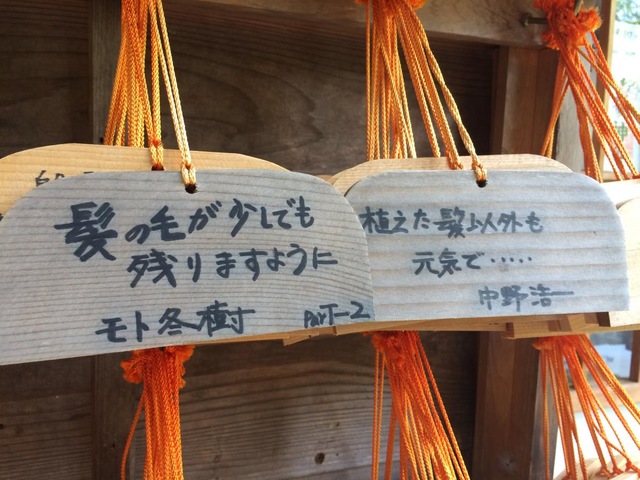 髪の毛が少しでも
残りますように
モト冬樹 ParT-2
植えた髪以外も
元気で……
中野浩一